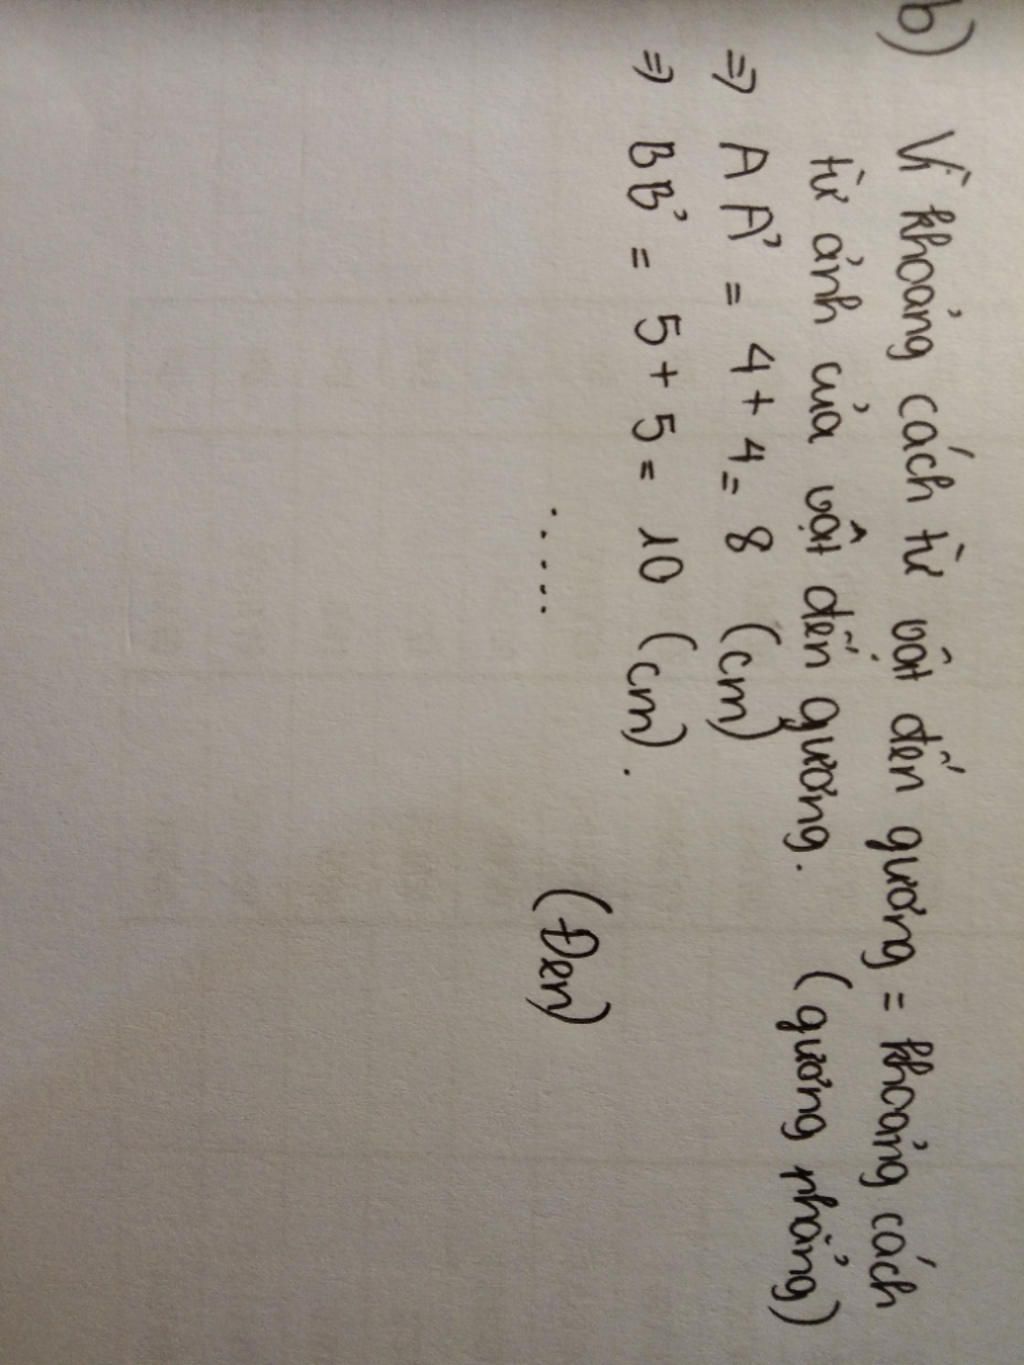 b) Vì khoảng cách từ vật đến gương = khoảng cách
từ ảnh của vật đến gương. (gương phẳng)
=> AA' = 4 + 4 = 8 (cm)
=> BB' = 5 + 5 = 10 (cm).
.....
(Đen)